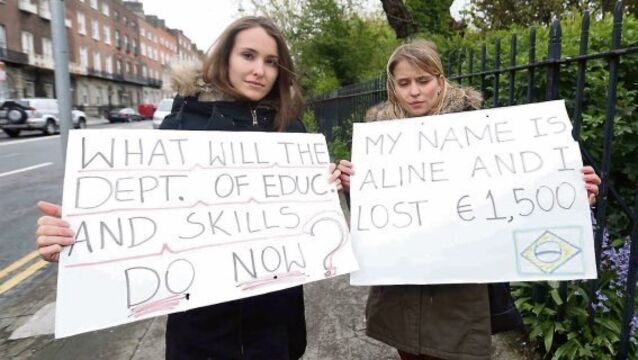 WHAT WILL THE
DEPT. OF EDUC.
AND SKILLS
DO NOW?
MY NAME IS
ALINE AND I
LOST €1,500